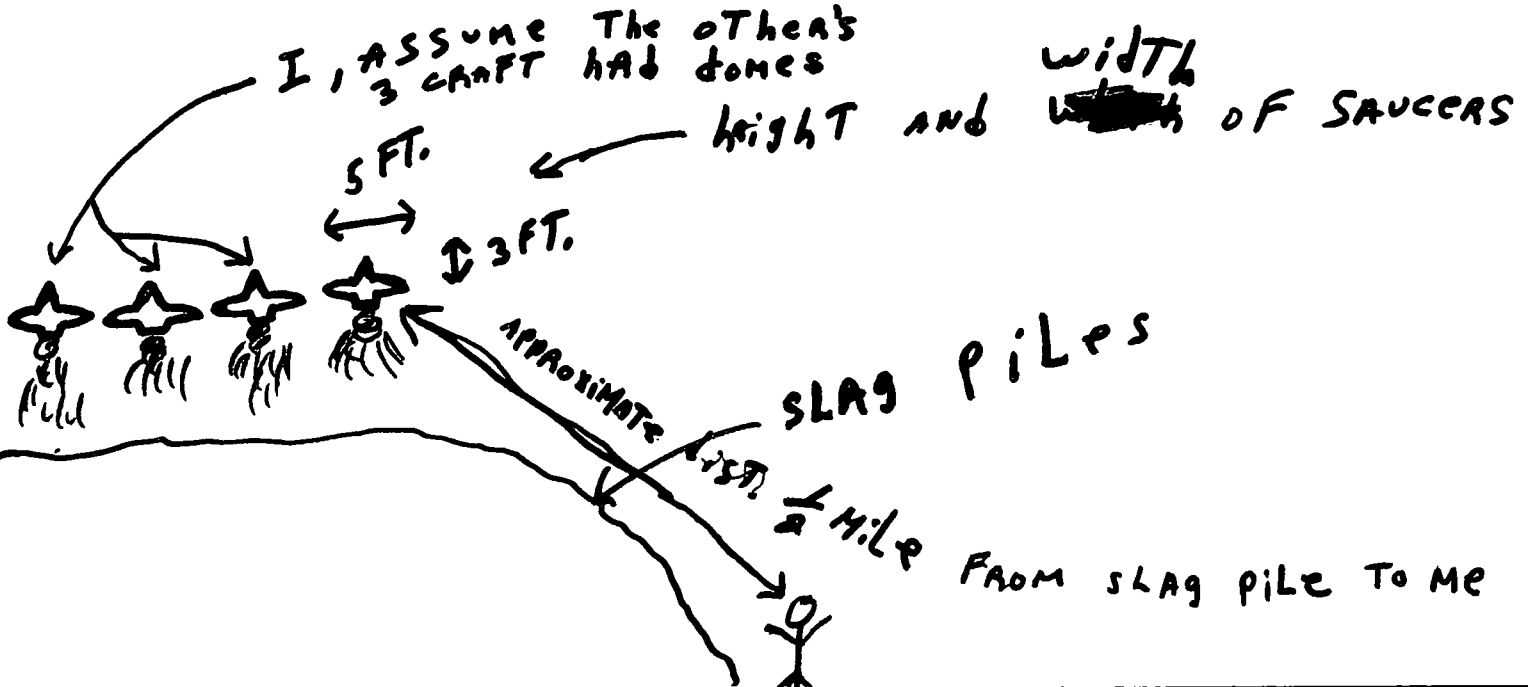 I, ASSUME The oTheR's
3 CRAFT hAd domes
widTh
heighT AND OF SAUCERS
5 FT.
3 FT.
APPROXiMATe DIST. 1/2 MiLe FROM SLAg piLe To Me
SLAg piLes